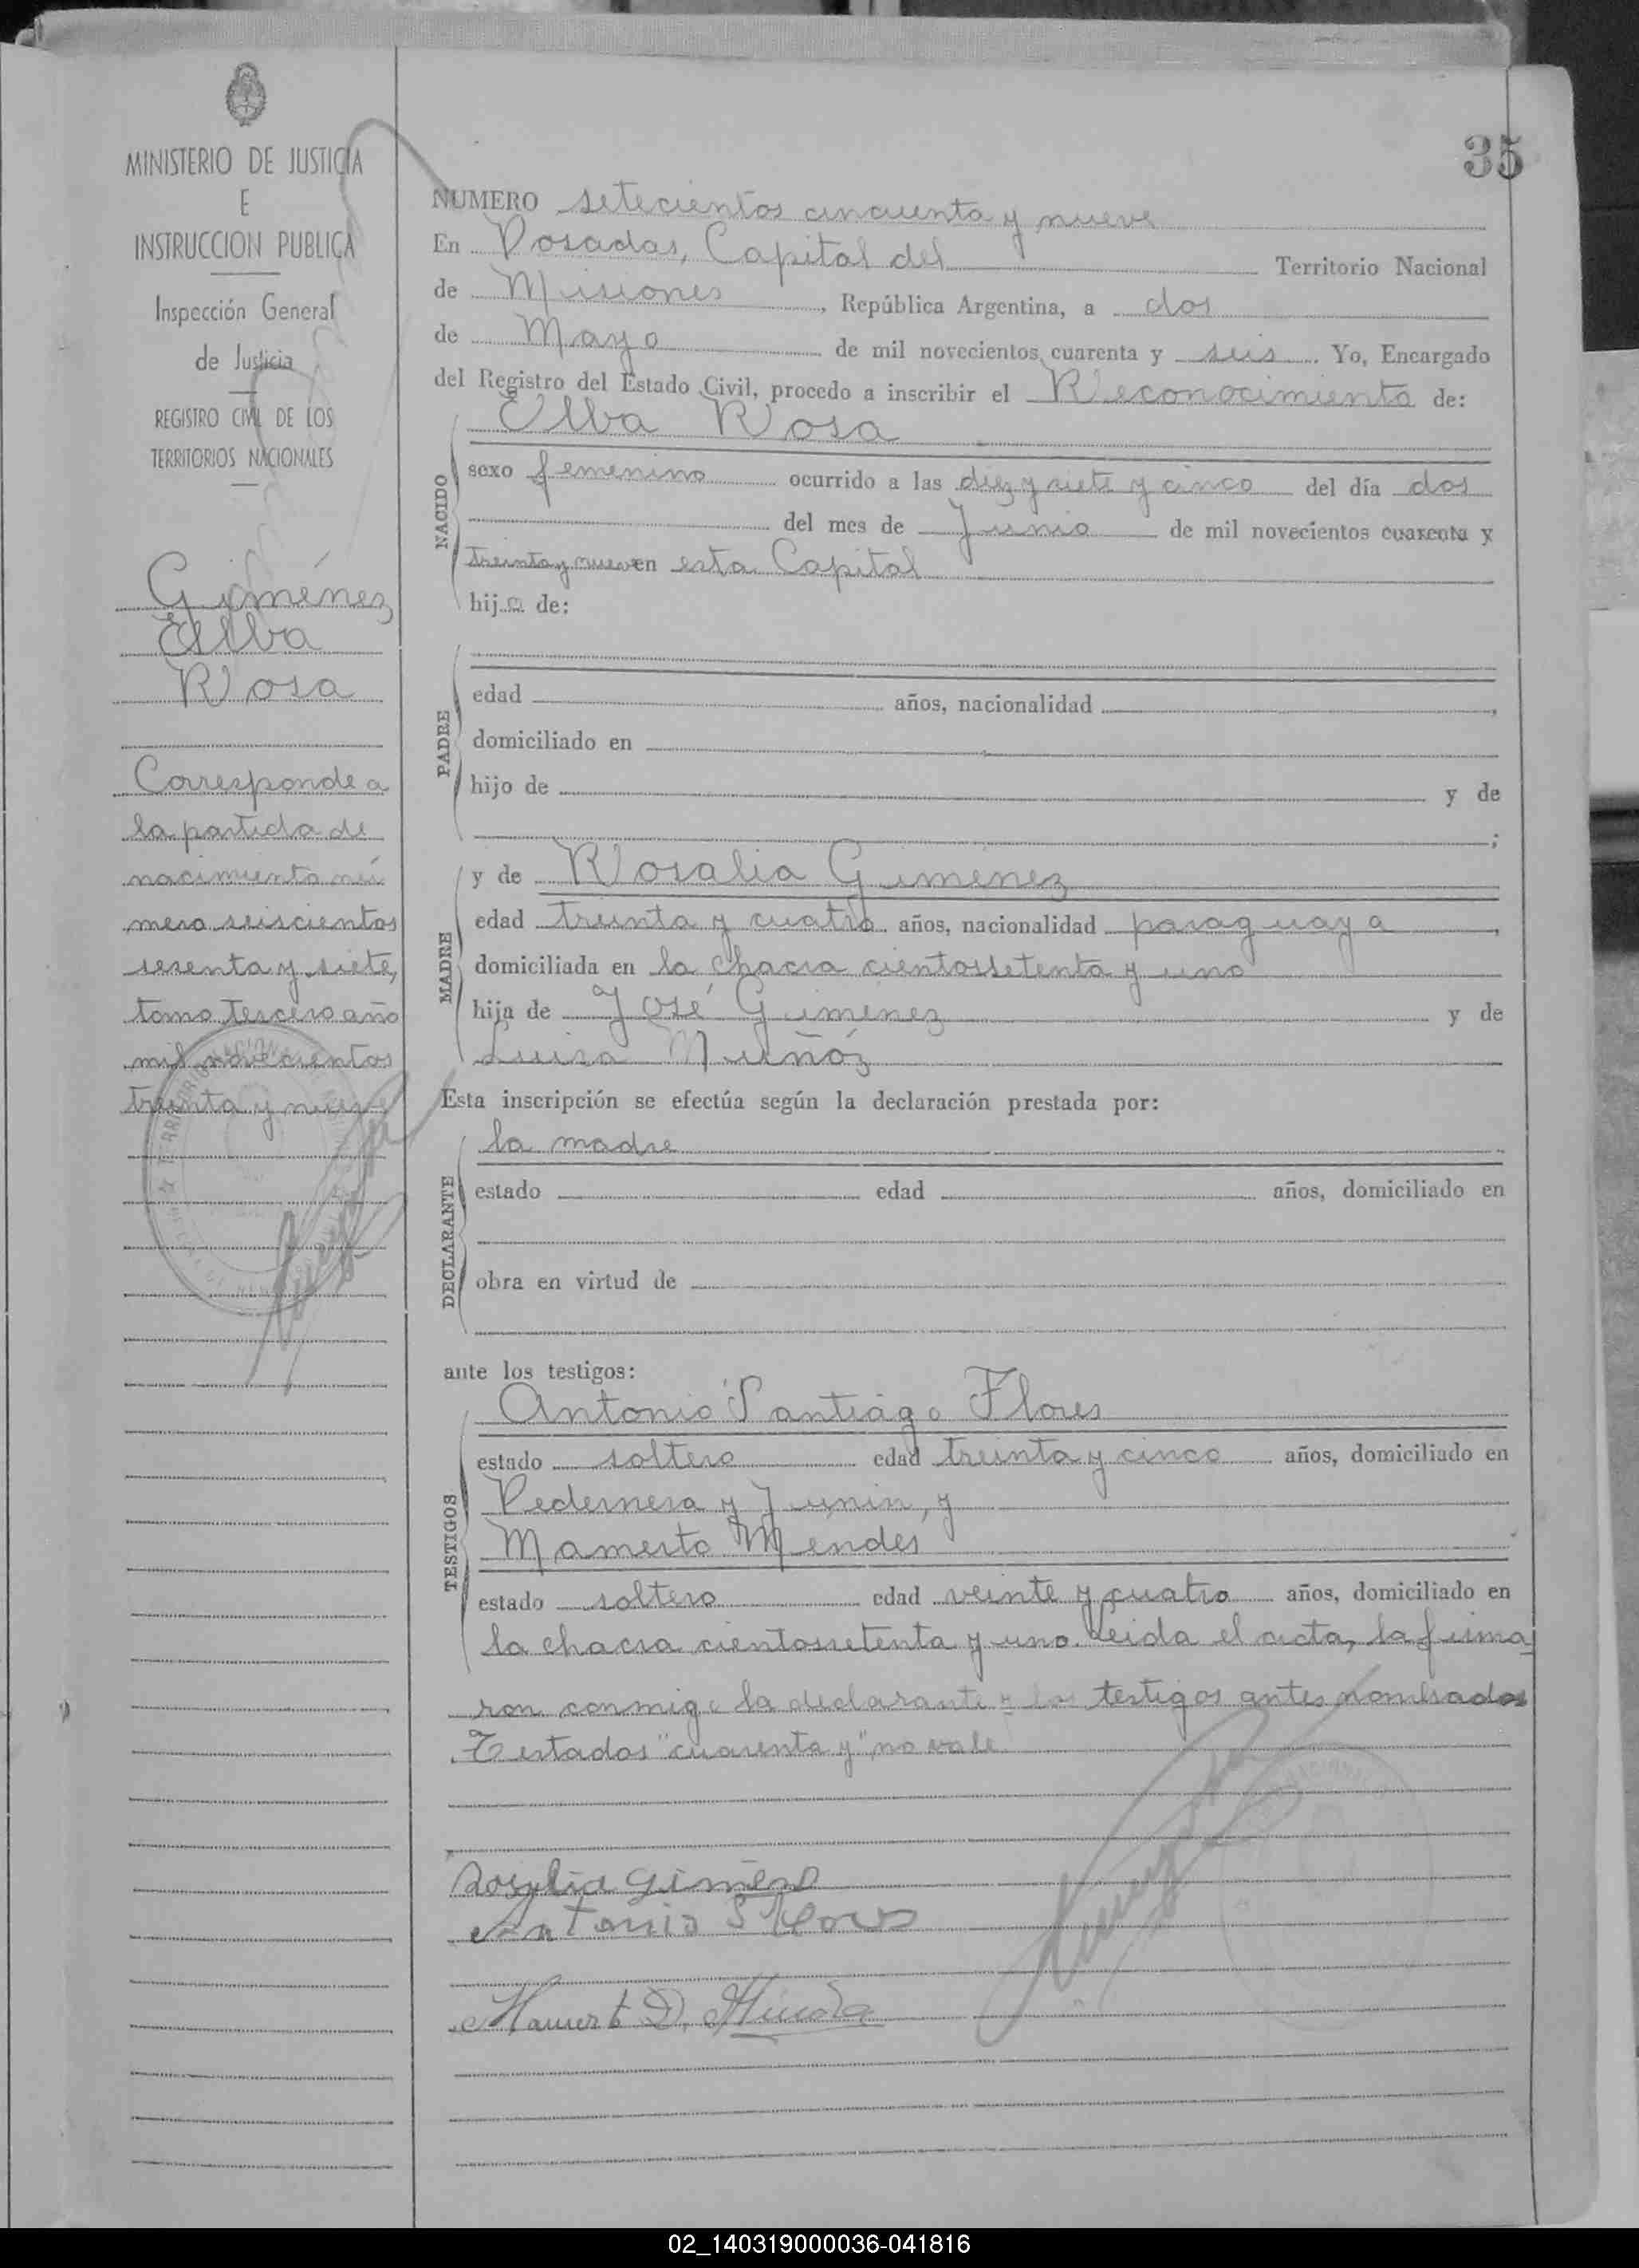 35
MINISTERIO DE JUSTICIA
E
INSTRUCCION PUBLICA
Inspección General
de Justicia
REGISTRO CIVIL DE LOS
TERRITORIOS NACIONALES
Giménez
Elba
Rosa
Corresponde a
la partida de
nacimiento nú
mero seiscientos
sesenta y siete,
tomo tercero año
mil novecientos
treinta y nueve
NUMERO setecientos cincuenta y nueve
En Posadas, Capital del Territorio Nacional
de Misiones, República Argentina, a dos
de Mayo de mil novecientos cuarenta y seis. Yo, Encargado
del Registro del Estado Civil, procedo a inscribir el Reconocimiento de:
Elba Rosa
NACIDO
sexo femenino ocurrido a las diez y siete y cinco del día dos
del mes de Junio de mil novecientos cuarenta y
treinta y nueve en esta Capital
hija de:
PADRE
edad años, nacionalidad ,
domiciliado en
hijo de y de
;
MADRE
y de Rosalia Gimenez
edad treinta y cuatro años, nacionalidad paraguaya,
domiciliada en la chacra cientosetenta y uno
hija de José Gimenez y de
Luisa Muñóz
Esta inscripción se efectúa según la declaración prestada por:
la madre
DECLARANTE
estado edad años, domiciliado en
obra en virtud de
ante los testigos:
Antonio Santiago Flores
TESTIGOS
estado soltero edad treinta y cinco años, domiciliado en
Pedernera y Junin, y
Mamerto Mendes
estado soltero edad veinte y cuatro años, domiciliado en
la chacra cientosetenta y uno. Leida el acta, la firma
ron conmigo la declarante y los testigos antes nombrados
Testados "cuarenta y" no vale
Rosalia Gimenez
Antonio S Flores
Mamerto D.
02_140319000036-041816